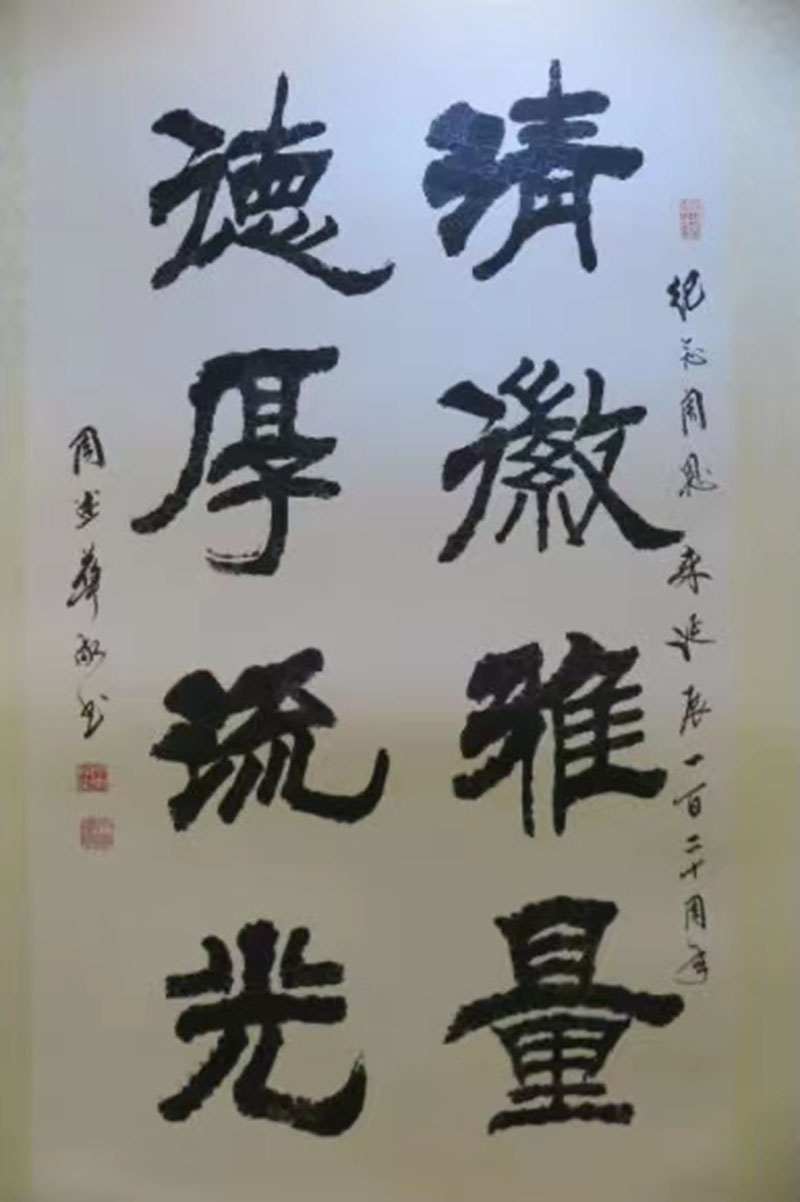 纪念周恩来诞辰一百二十周年
清徽雅量
德厚流光
周志华敬书